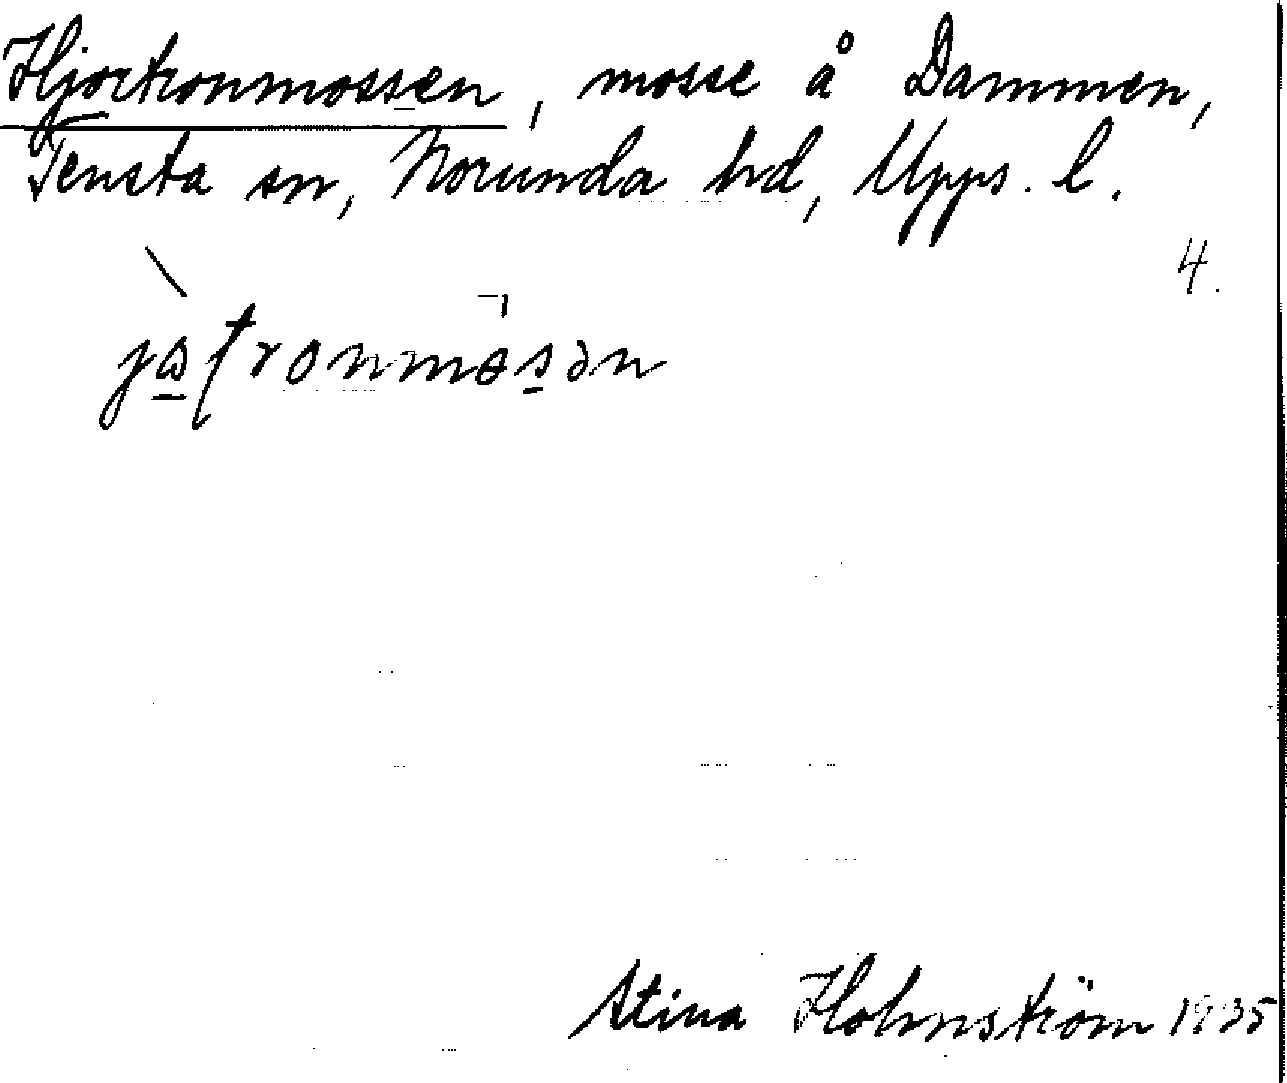 Hjortronmossen, mosse å Dammen,
Tensta sn, Norunda hd, Upps. l.
4.
Stina Holmström 1935